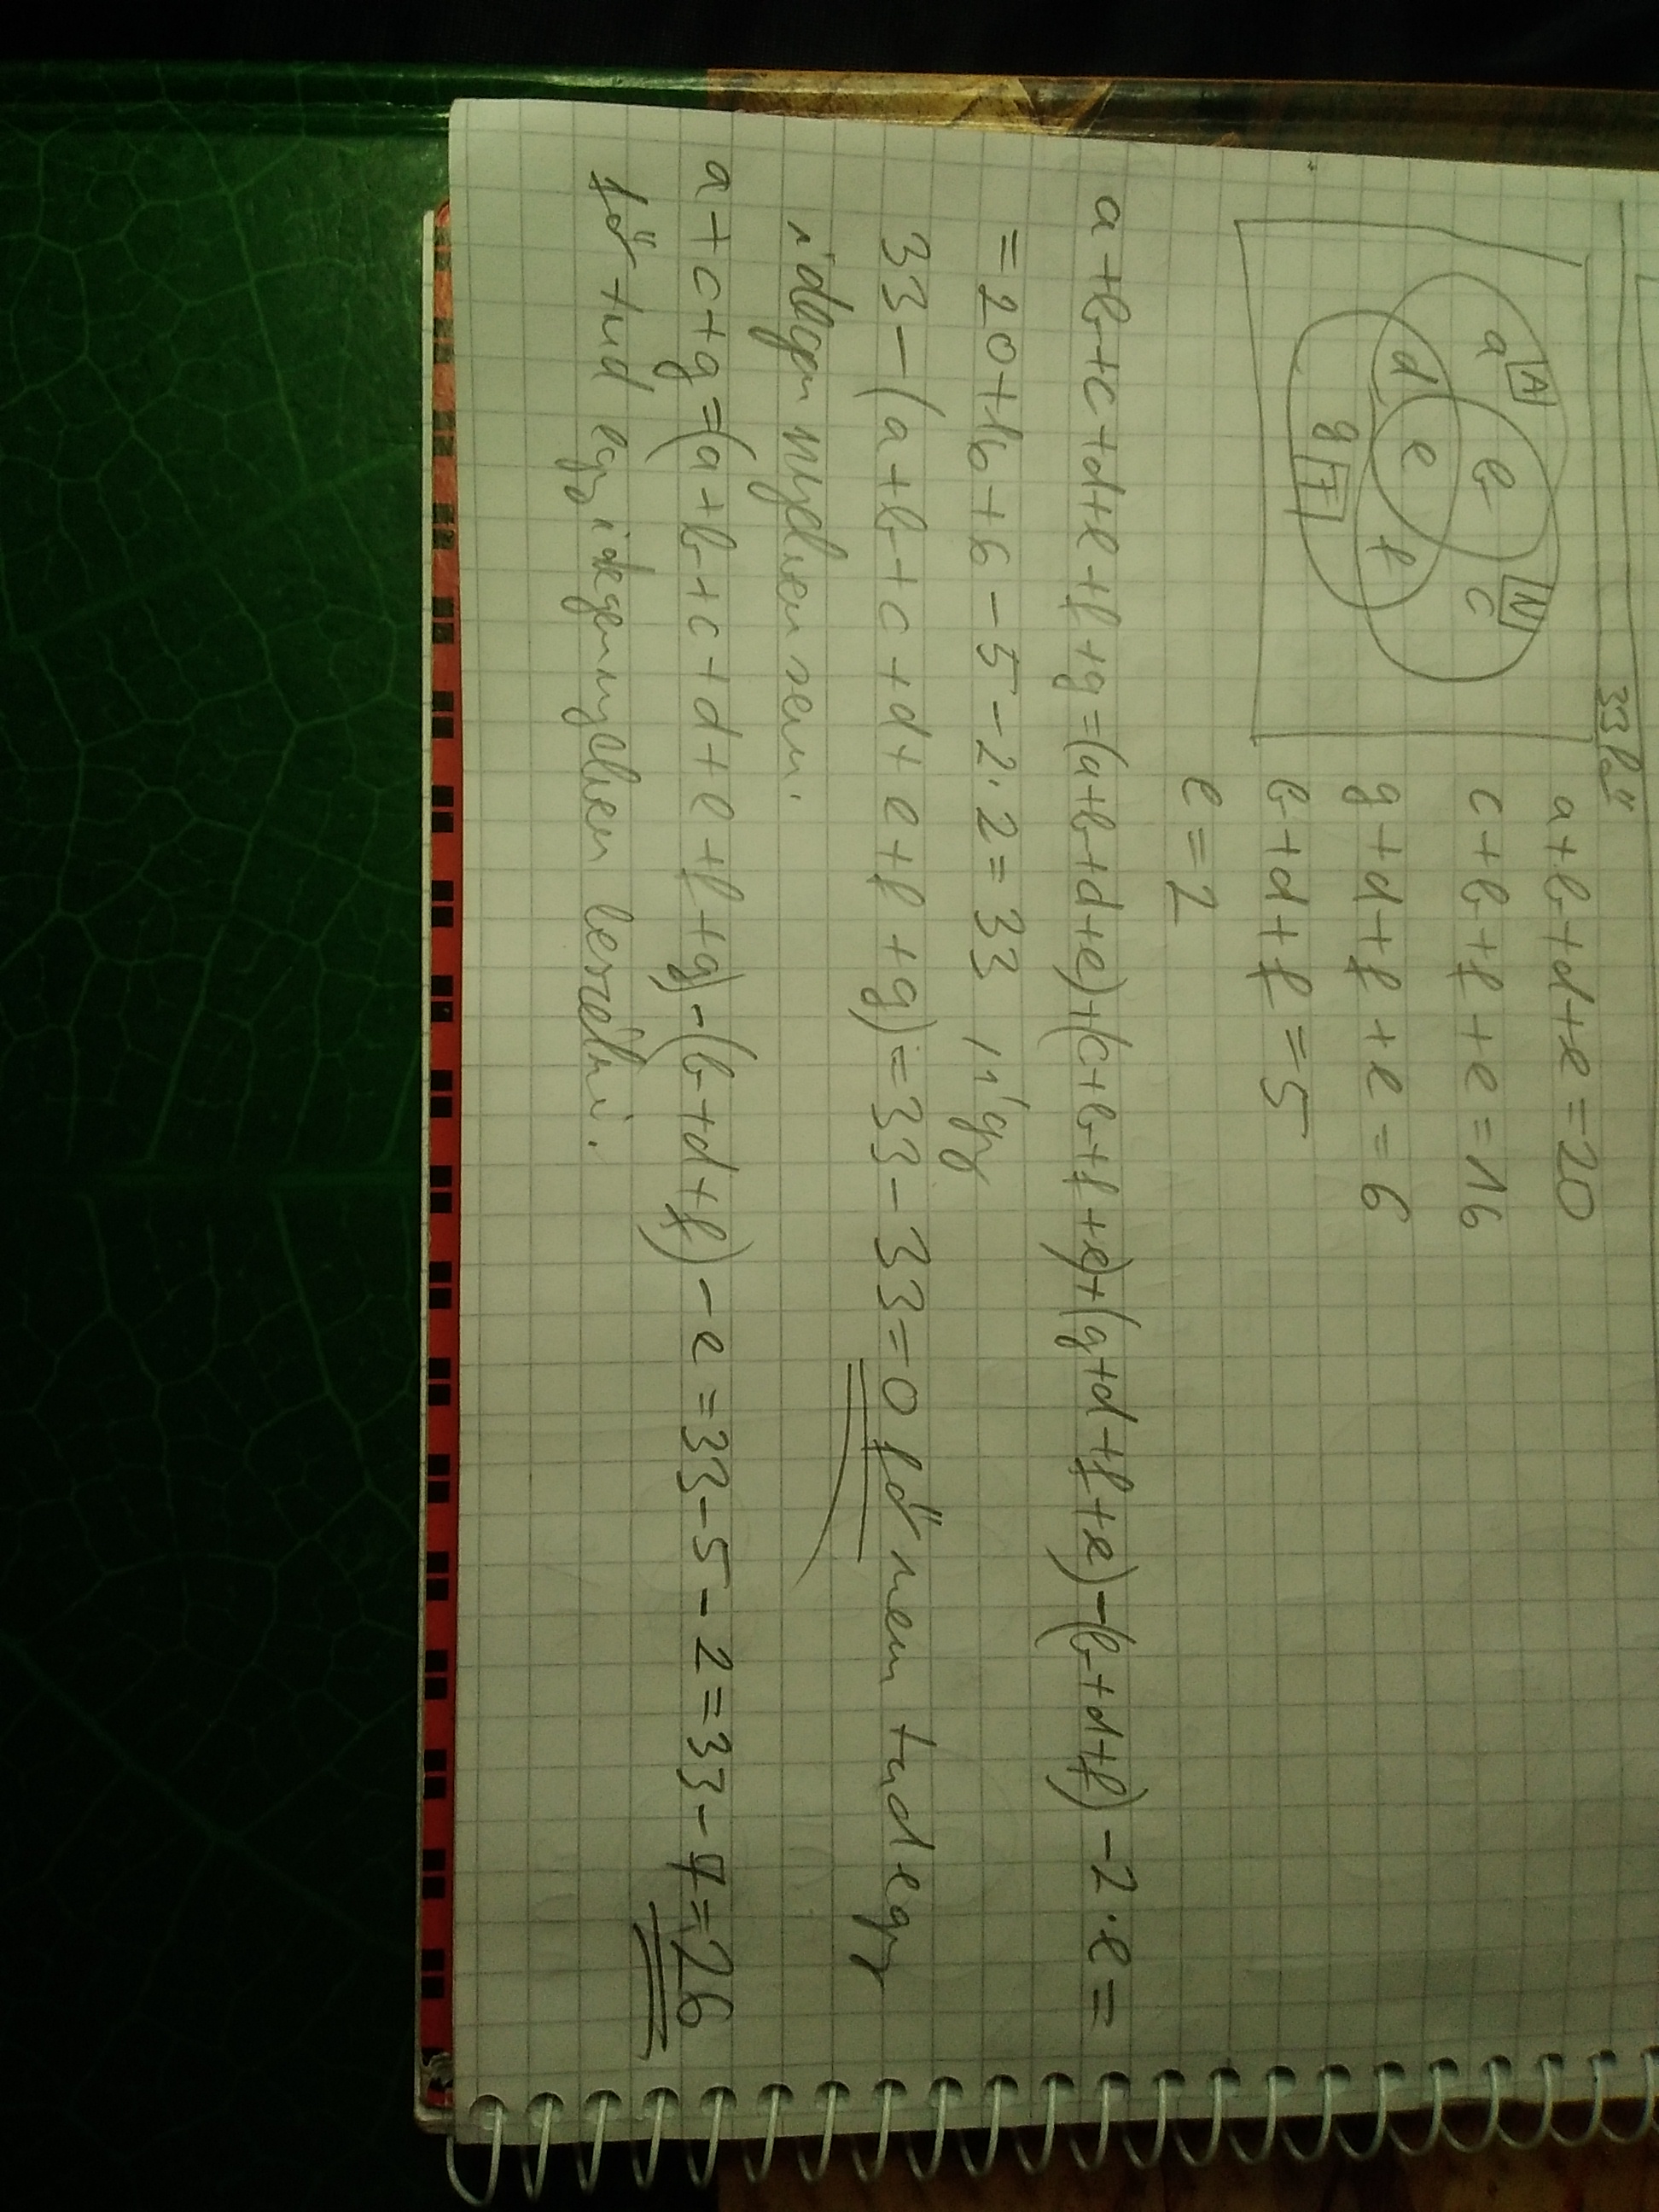 33 fő
A
N
F
a
b
c
d
e
f
g
a+b+d+e=20
c+b+f+e=16
g+d+f+e=6
b+d+f=5
e=2
a+b+c+d+e+f+g=(a+b+d+e)+(c+b+f+e)+(g+d+f+e)-(b+d+f)-2·e=
=20+16+6-5-2·2=33 így
33-(a+b+c+d+e+f+g)=33-33=0 fő nem tud egy
idegen nyelven sem.
a+c+g=(a+b+c+d+e+f+g)-(b+d+f)-e=33-5-2=33-7=26
fő tud egy idegen nyelven beszélni.